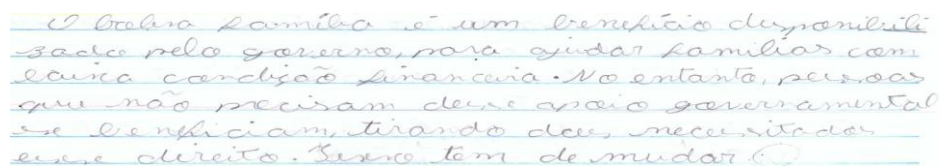 O bolsa família é um benefício disponibili
zado pelo governo, para ajudar famílias com
baixa condição financeira. No entanto, pessoas
que não precisam desse apoio governamental
se beneficiam, tirando dos necessitados
esse direito. Isso tem de mudar.